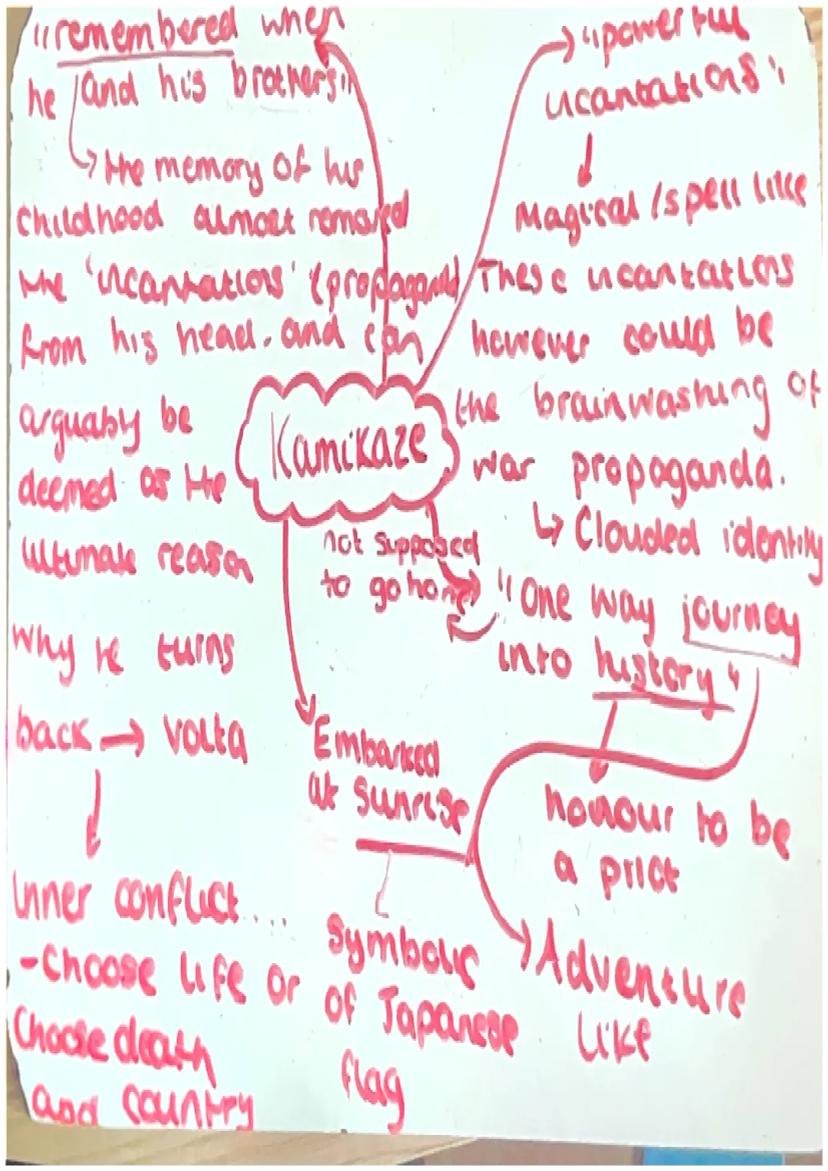 "remembered when
he and his brothers"
the memory of his
childhood almost removed
the 'incantations' (propaganda)
from his head. and can
arguably be
deemed as the
ultimate reason
why he turns
back → volta
Inner conflict...
-Choose life or
Choose death
and country
Kamikaze
"powerful
incantations"
Magical / spell like
These incantations
however could be
the brainwashing of
war propaganda.
↳ Clouded identity
"One way journey
into history"
not supposed
to go home
honour to be
a pilot
Adventure
like
Embarked
at sunrise
Symbolic
of Japanese
flag